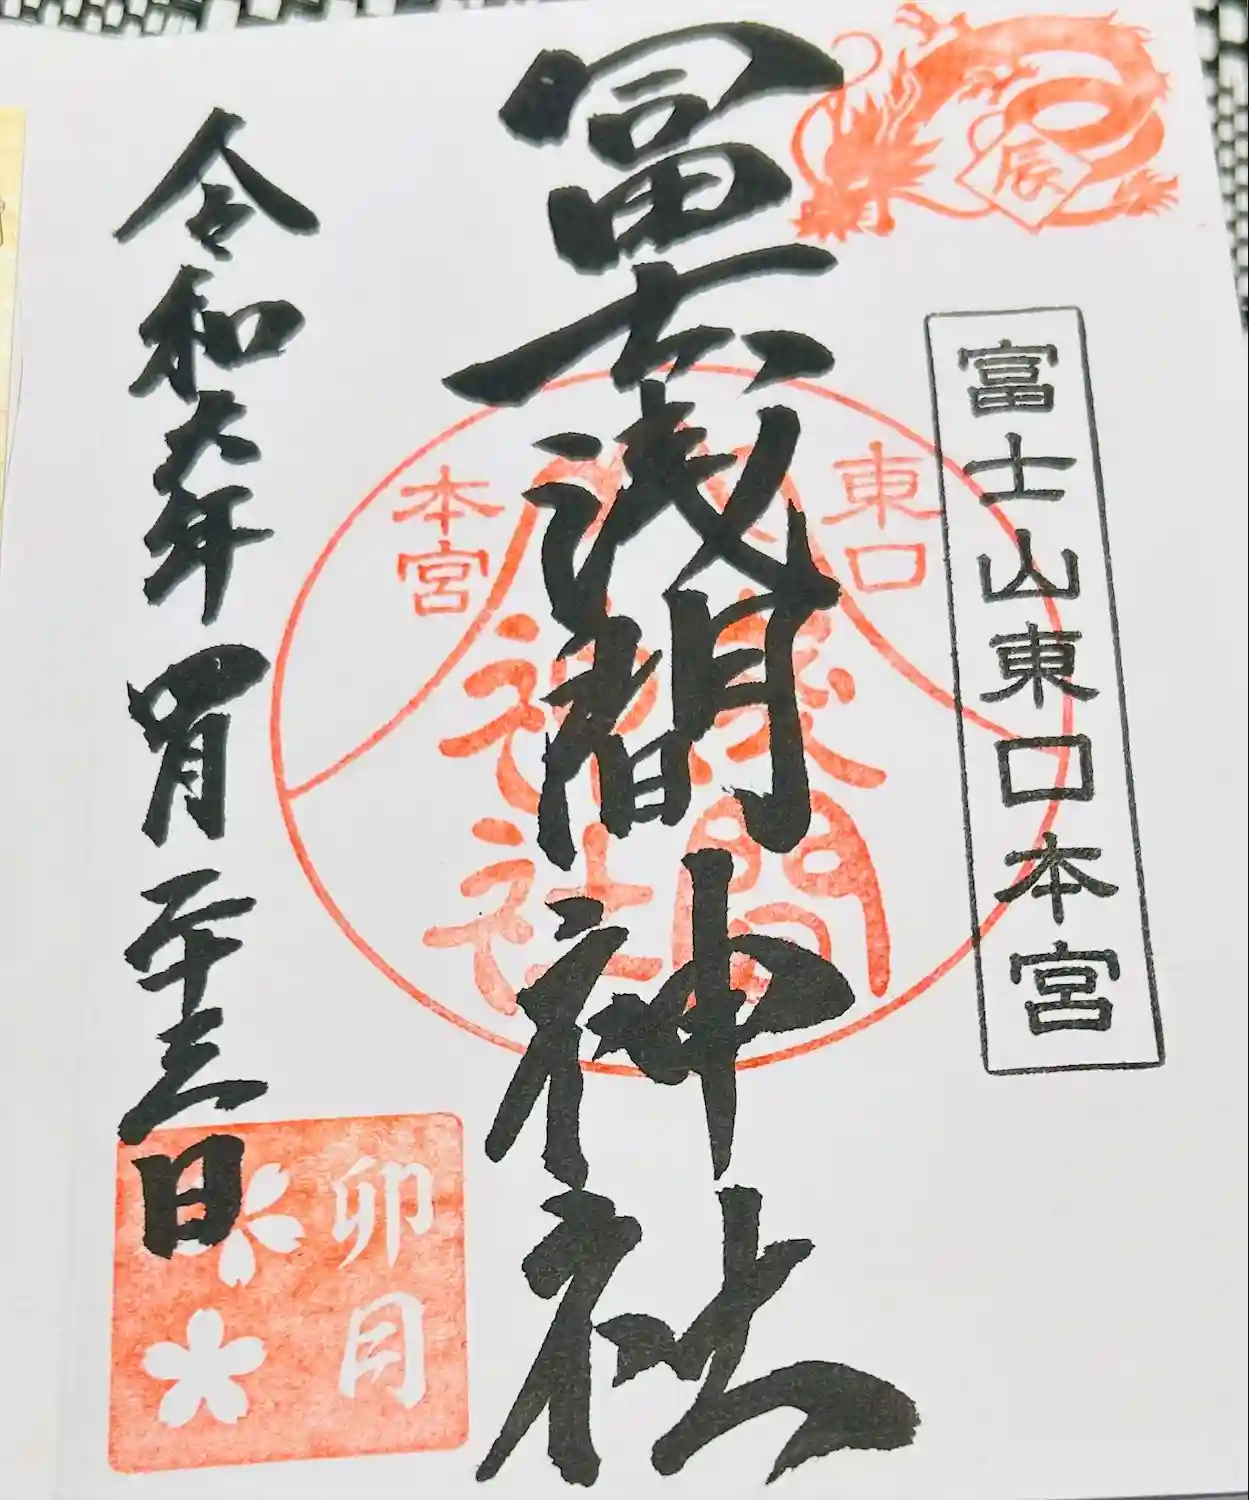 辰
富士山東口本宮
冨士浅間神社
東口
本宮
間
神社
令和六年四月二十三日
卯月